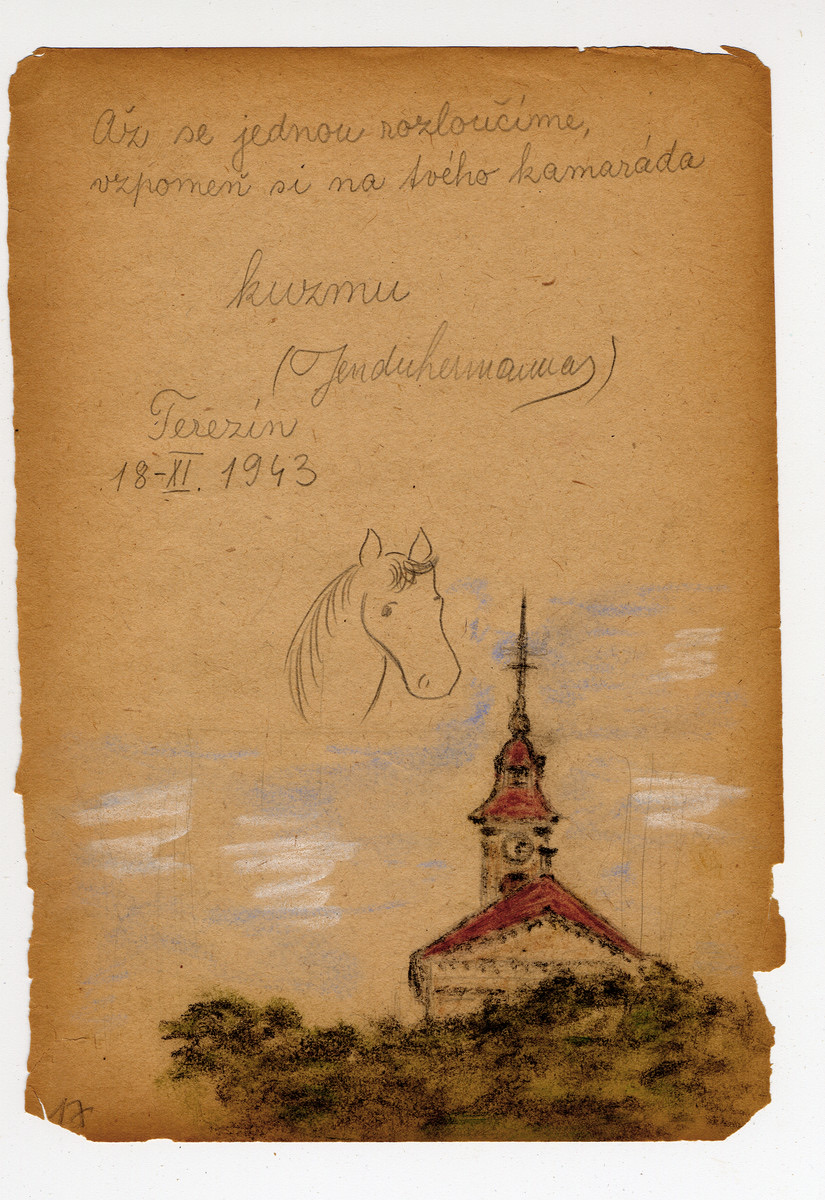 Až se jednou rozloučíme,
vzpomeň si na tvého kamaráda
kuzmu
(Jenduhermanna)
Terezín
18-XI. 1943
17